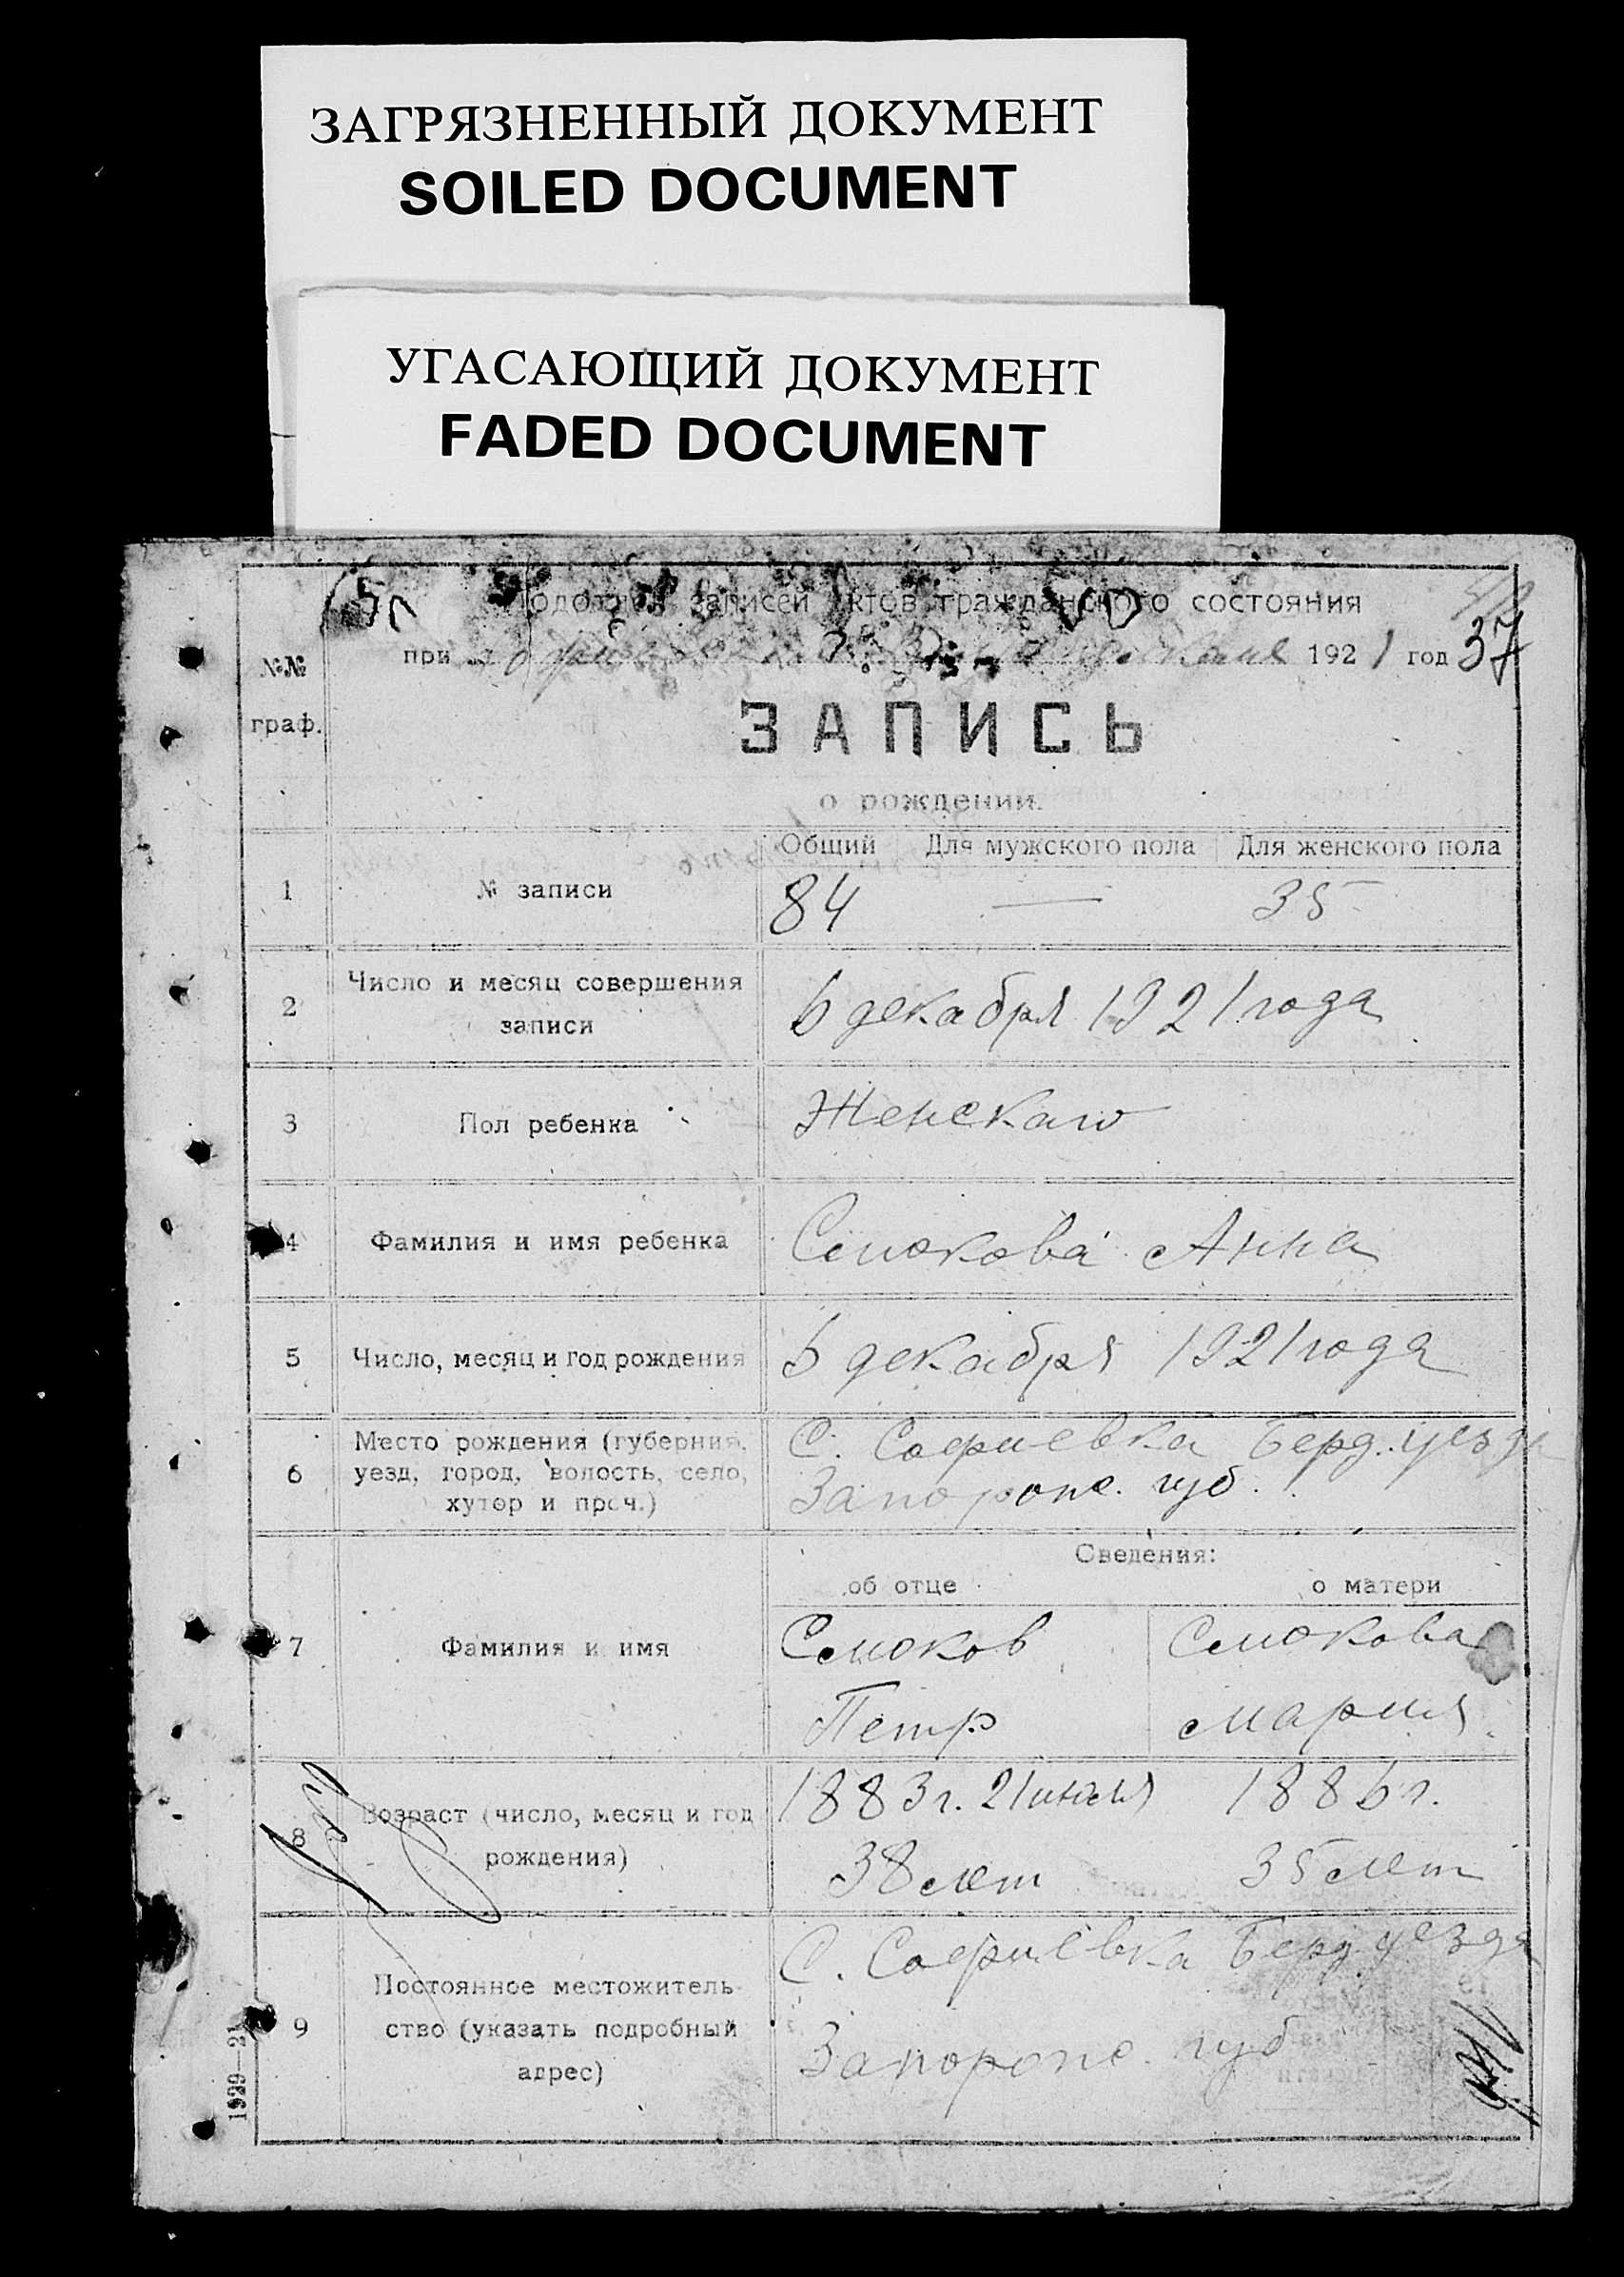 ЗАГРЯЗНЕННЫЙ ДОКУМЕНТ
SOILED DOCUMENT
УГАСАЮЩИЙ ДОКУМЕНТ
FADED DOCUMENT
Подотдел записей актов гражданского состояния
при 1921 год 37
№№
граф.
ЗАПИСЬ
о рождении.
Общий Для мужского пола Для женского пола
1 № записи 84 — 35
2 Число и месяц совершения
записи
6 декабря 1921 года
3 Пол ребенка Женскаго
4 Фамилия и имя ребенка Смокова Анна
5 Число, месяц и год рождения 6 декабря 1921 года
6 Место рождения (губерния,
уезд, город, волость, село,
хутор и проч.)
С. Софиевка Берд. уезда
Запорож. губ.
Сведения:
об отце о матери
7 Фамилия и имя Смоков Смокова
Петр Мария
8 Возраст (число, месяц и год
рождения)
1883 г. 21 1886 г.
38 лет 35 лет
9 Постоянное местожитель-
ство (указать подробный
адрес)
С. Софиевка Берд уезда
Запорож. губ